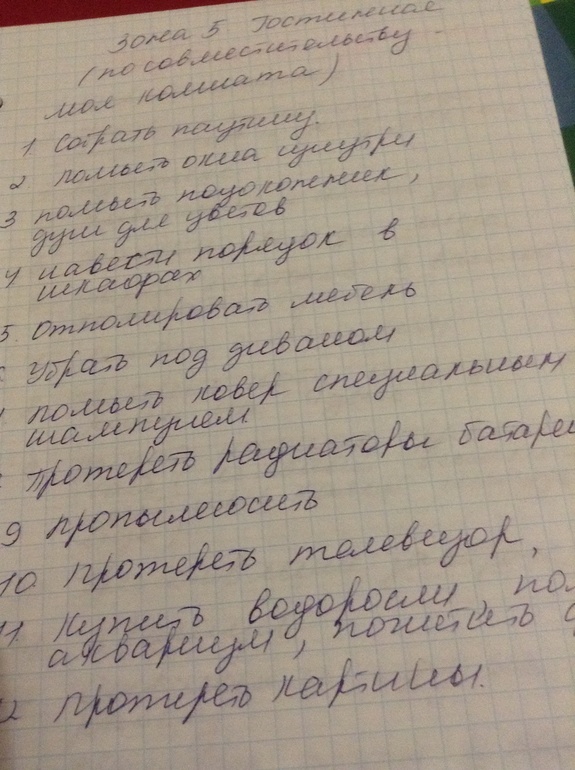 Зона 5 Гостинная
(по совместительству
моя комната)
1. Собрать паутину.
2 помыть окна изнутри
3 помыть подоконник,
душ для цветов
4 навести порядок в
шкафах
5. Отполировать мебель
Убрать под диваном
помыть ковер специальным
шампунем
Протереть радиаторы батареи
9 пропылесосить
10 протереть телевизор,
11. Купить водоросли,
аквариум, почистить
12 протереть картины.